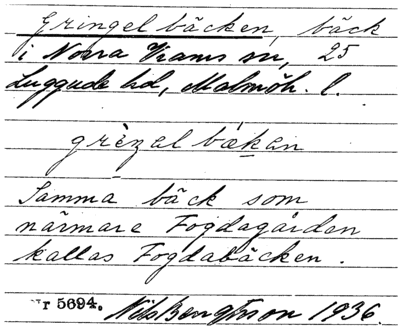 Gringelbäcken, bäck
i Norra Vrams sn, 25
Luggude hd, Malmöh. l.
grèŋalbäkan
Samma bäck som
närmare Fogdagården
kallas Fogdabäcken.
Nr 5694. Nils Bengtsson 1936.